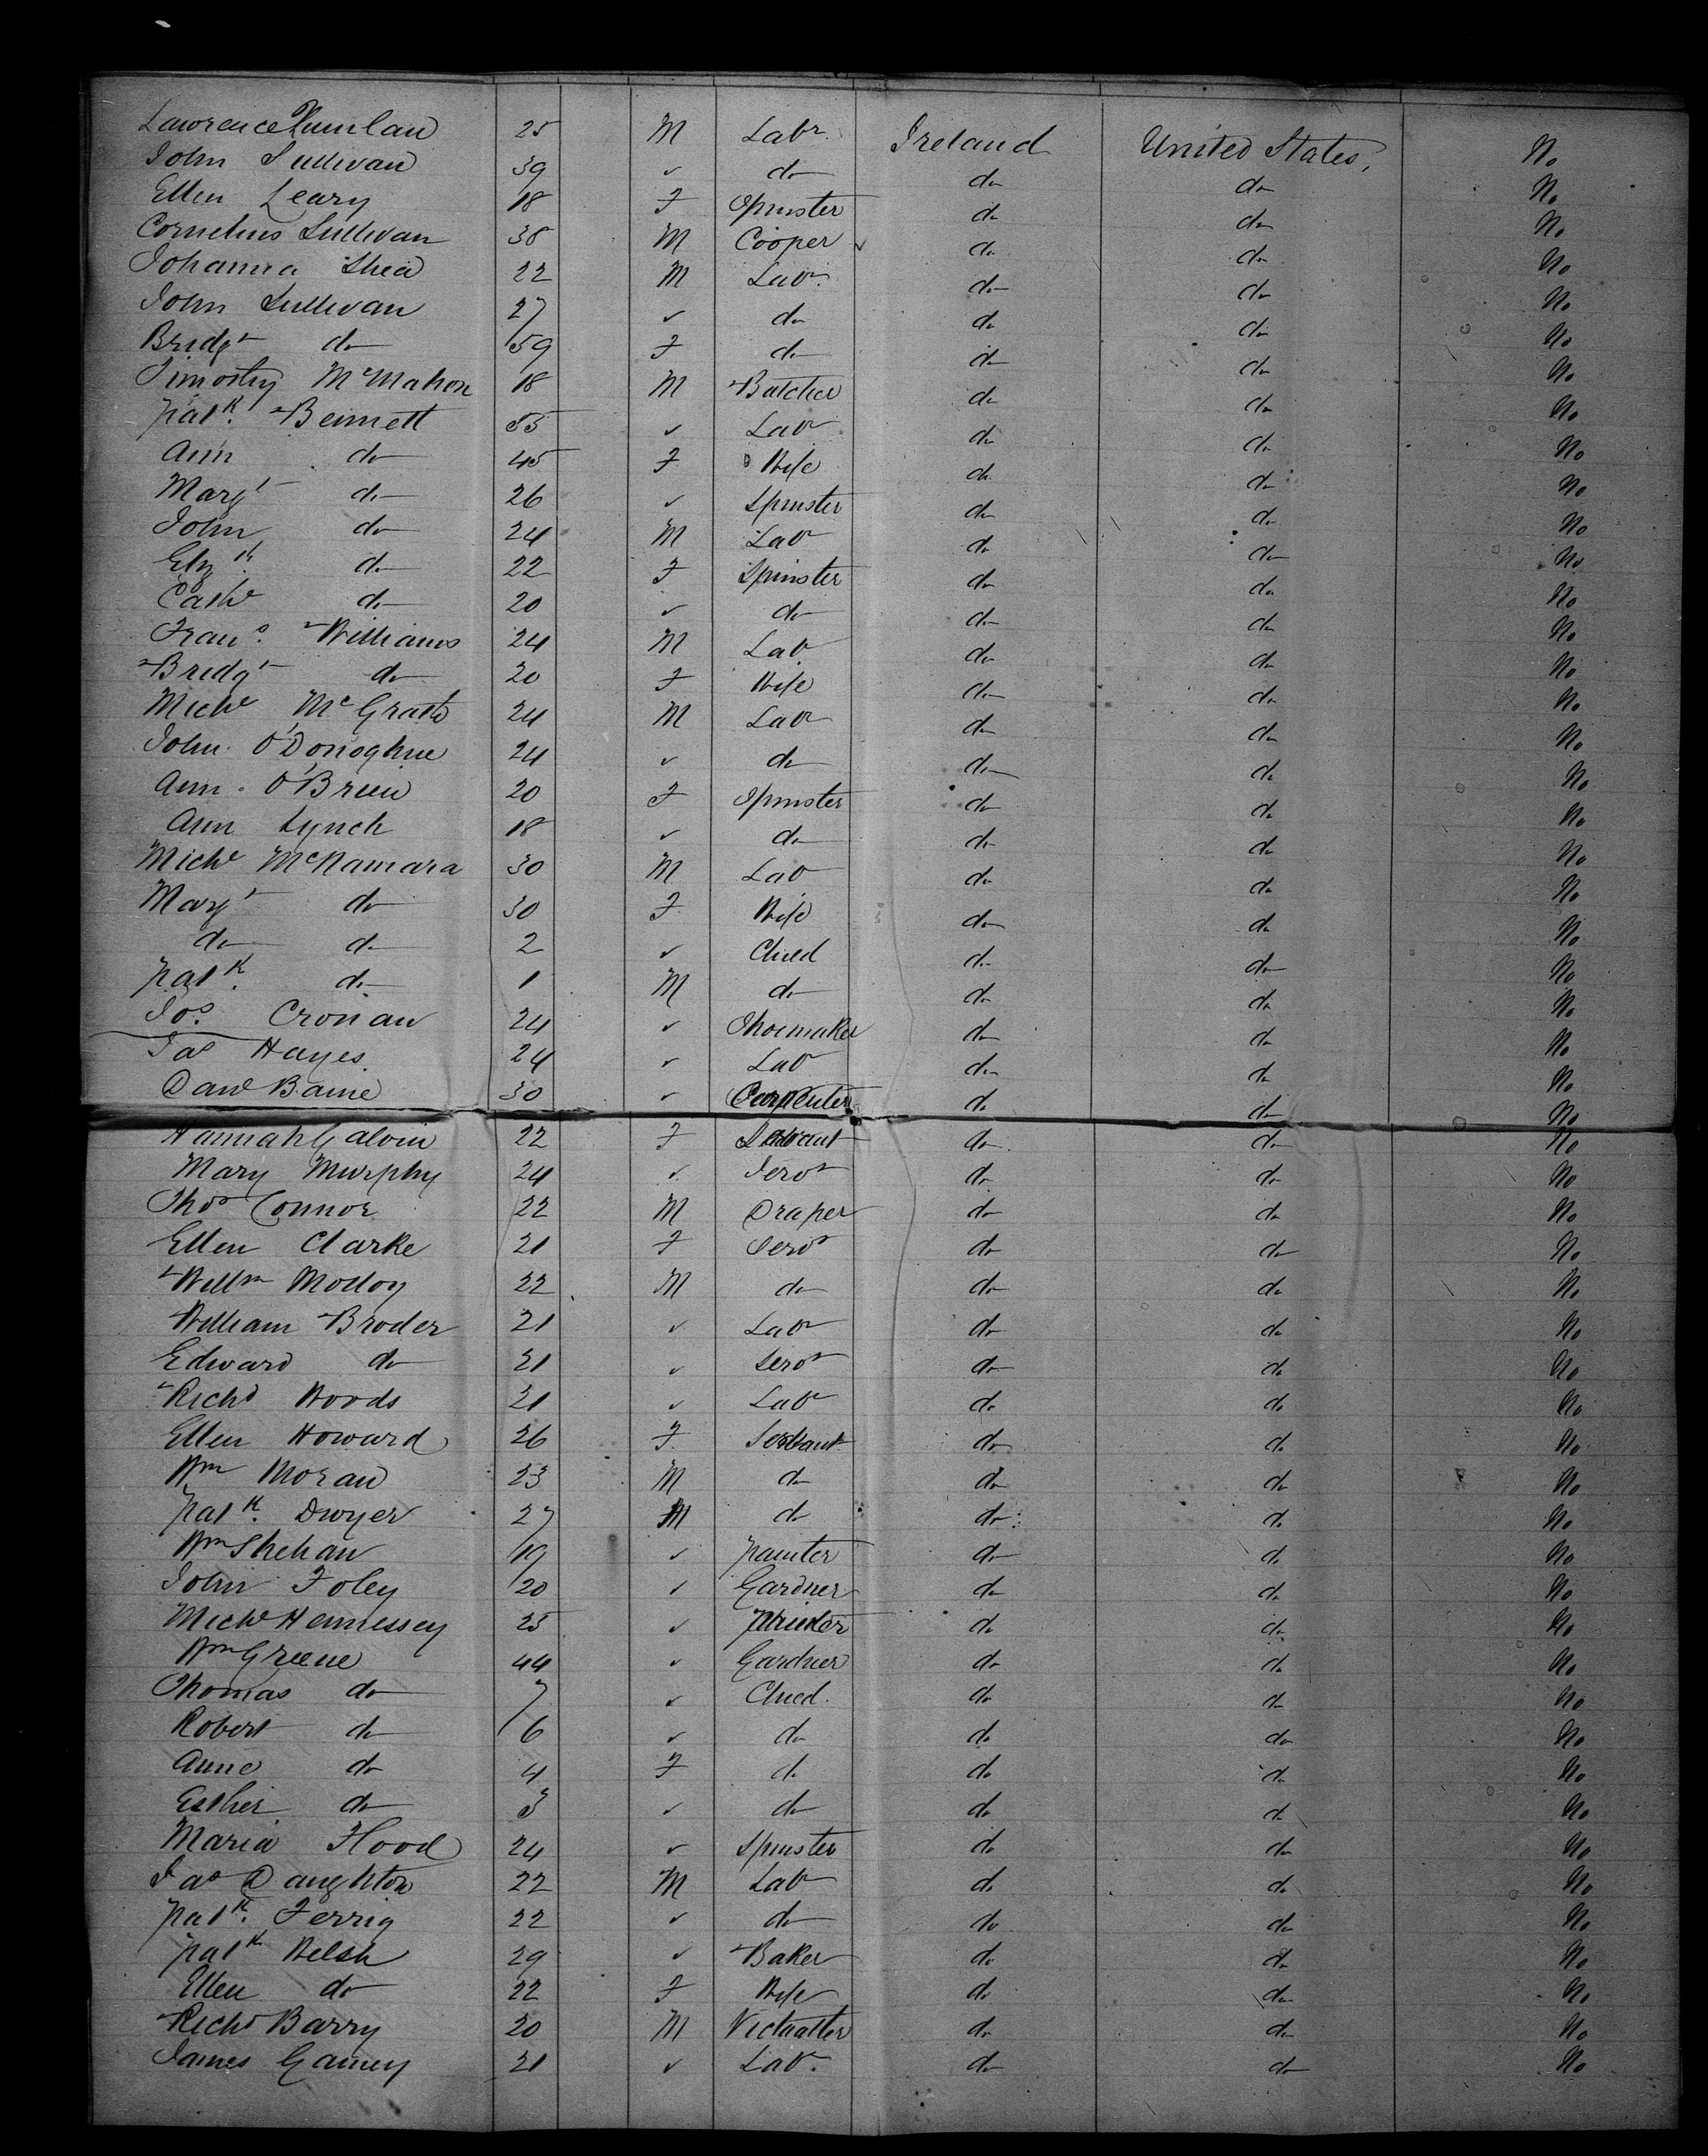 Lawrence Quinlan 25 M Labr. Ireland United States, No
John Sullivan 39 " do do do No
Ellen Leary 18 F Spinster do do No
Cornelius Sullivan 38 M Cooper do do No
Johanna Shea 22 M Labr. do do No
John Sullivan 27 " do do do No
Bridgt do 59 F do do do No
Timothy McMahon 18 M Butcher do do No
Patk. Bennett 55 " Labr do do No
Ann do 45 F Wife do do No
Margt do 26 " Spinster do do No
John do 24 M Labr do do No
Elizth. do 22 F Spinster do do No
Cathe do 20 " do do do No
Frans. Williams 24 M Labr do do No
Bridgt do 20 F Wife do do No
Michl McGrath 24 M Labr do do No
John O'Donoghue 24 " do do do No
Ann O'Brien 20 F Spinster do do No
Ann Lynch 18 " do do do No
Michl McNamara 30 M Labr do do No
Margt do 30 F Wife do do No
do do 2 " Child do do No
Patk. do 1 M do do do No
Jos. Cronan 24 " Shoemaker do do No
Jas Hayes 24 " Labr do do No
Danl Baine 30 " Carpenter do do No
Hannah Galvin 22 F Servant do do No
Mary Murphy 24 " Servt do do No
Thos Connor 22 M Draper do do No
Ellen Clarke 21 F Servt do do No
Willm Molloy 22 M do do do No
William Broder 21 " Labr do do No
Edward do 21 " Servt do do No
Richd Woods 21 " Labr do do No
Ellen Howard 26 F Servant do do No
Wm Moran 23 M do do do No
Patk. Dwyer 27 M do do do No
Wm Shehan 19 " Painter do do No
John Foley 20 " Gardner do do No
Michl Hennessey 25 " Printer do do No
Wm Greene 44 " Gardner do do No
Thomas do 7 " Child. do do No
Robert do 6 " do do do No
Anne do 4 F do do do No
Esther do 3 " do do do No
Maria Flood 24 " Spinster do do No
Jas Daughton 22 M Labr do do No
Patk. Ferrig 22 " do do do No
Patk Welsh 29 " Baker do do No
Ellen do 22 F Wife do do No
Richd Barry 20 M Victualler do do No
James Gainey 21 " Labr. do do No